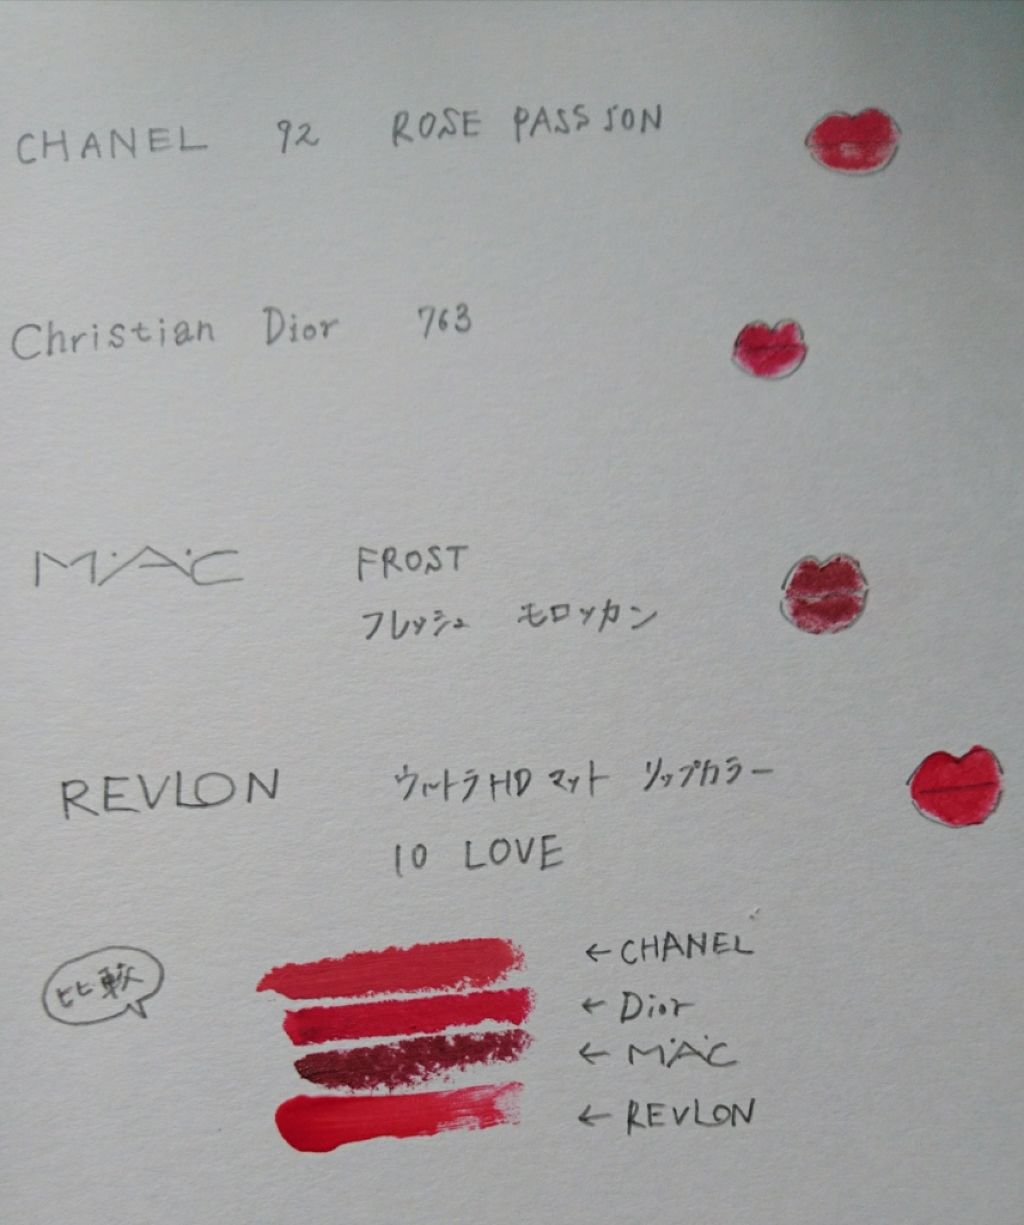 CHANEL 92 ROSE PASSION
Christian Dior 763
M·A·C FROST
フレッシュ モロッカン
REVLON ウルトラHDマット リップカラー
10 LOVE
比較
←CHANEL
←Dior
←M·A·C
←REVLON